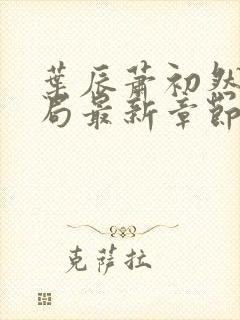 葉辰蕭初然
局最新章節
克萨拉